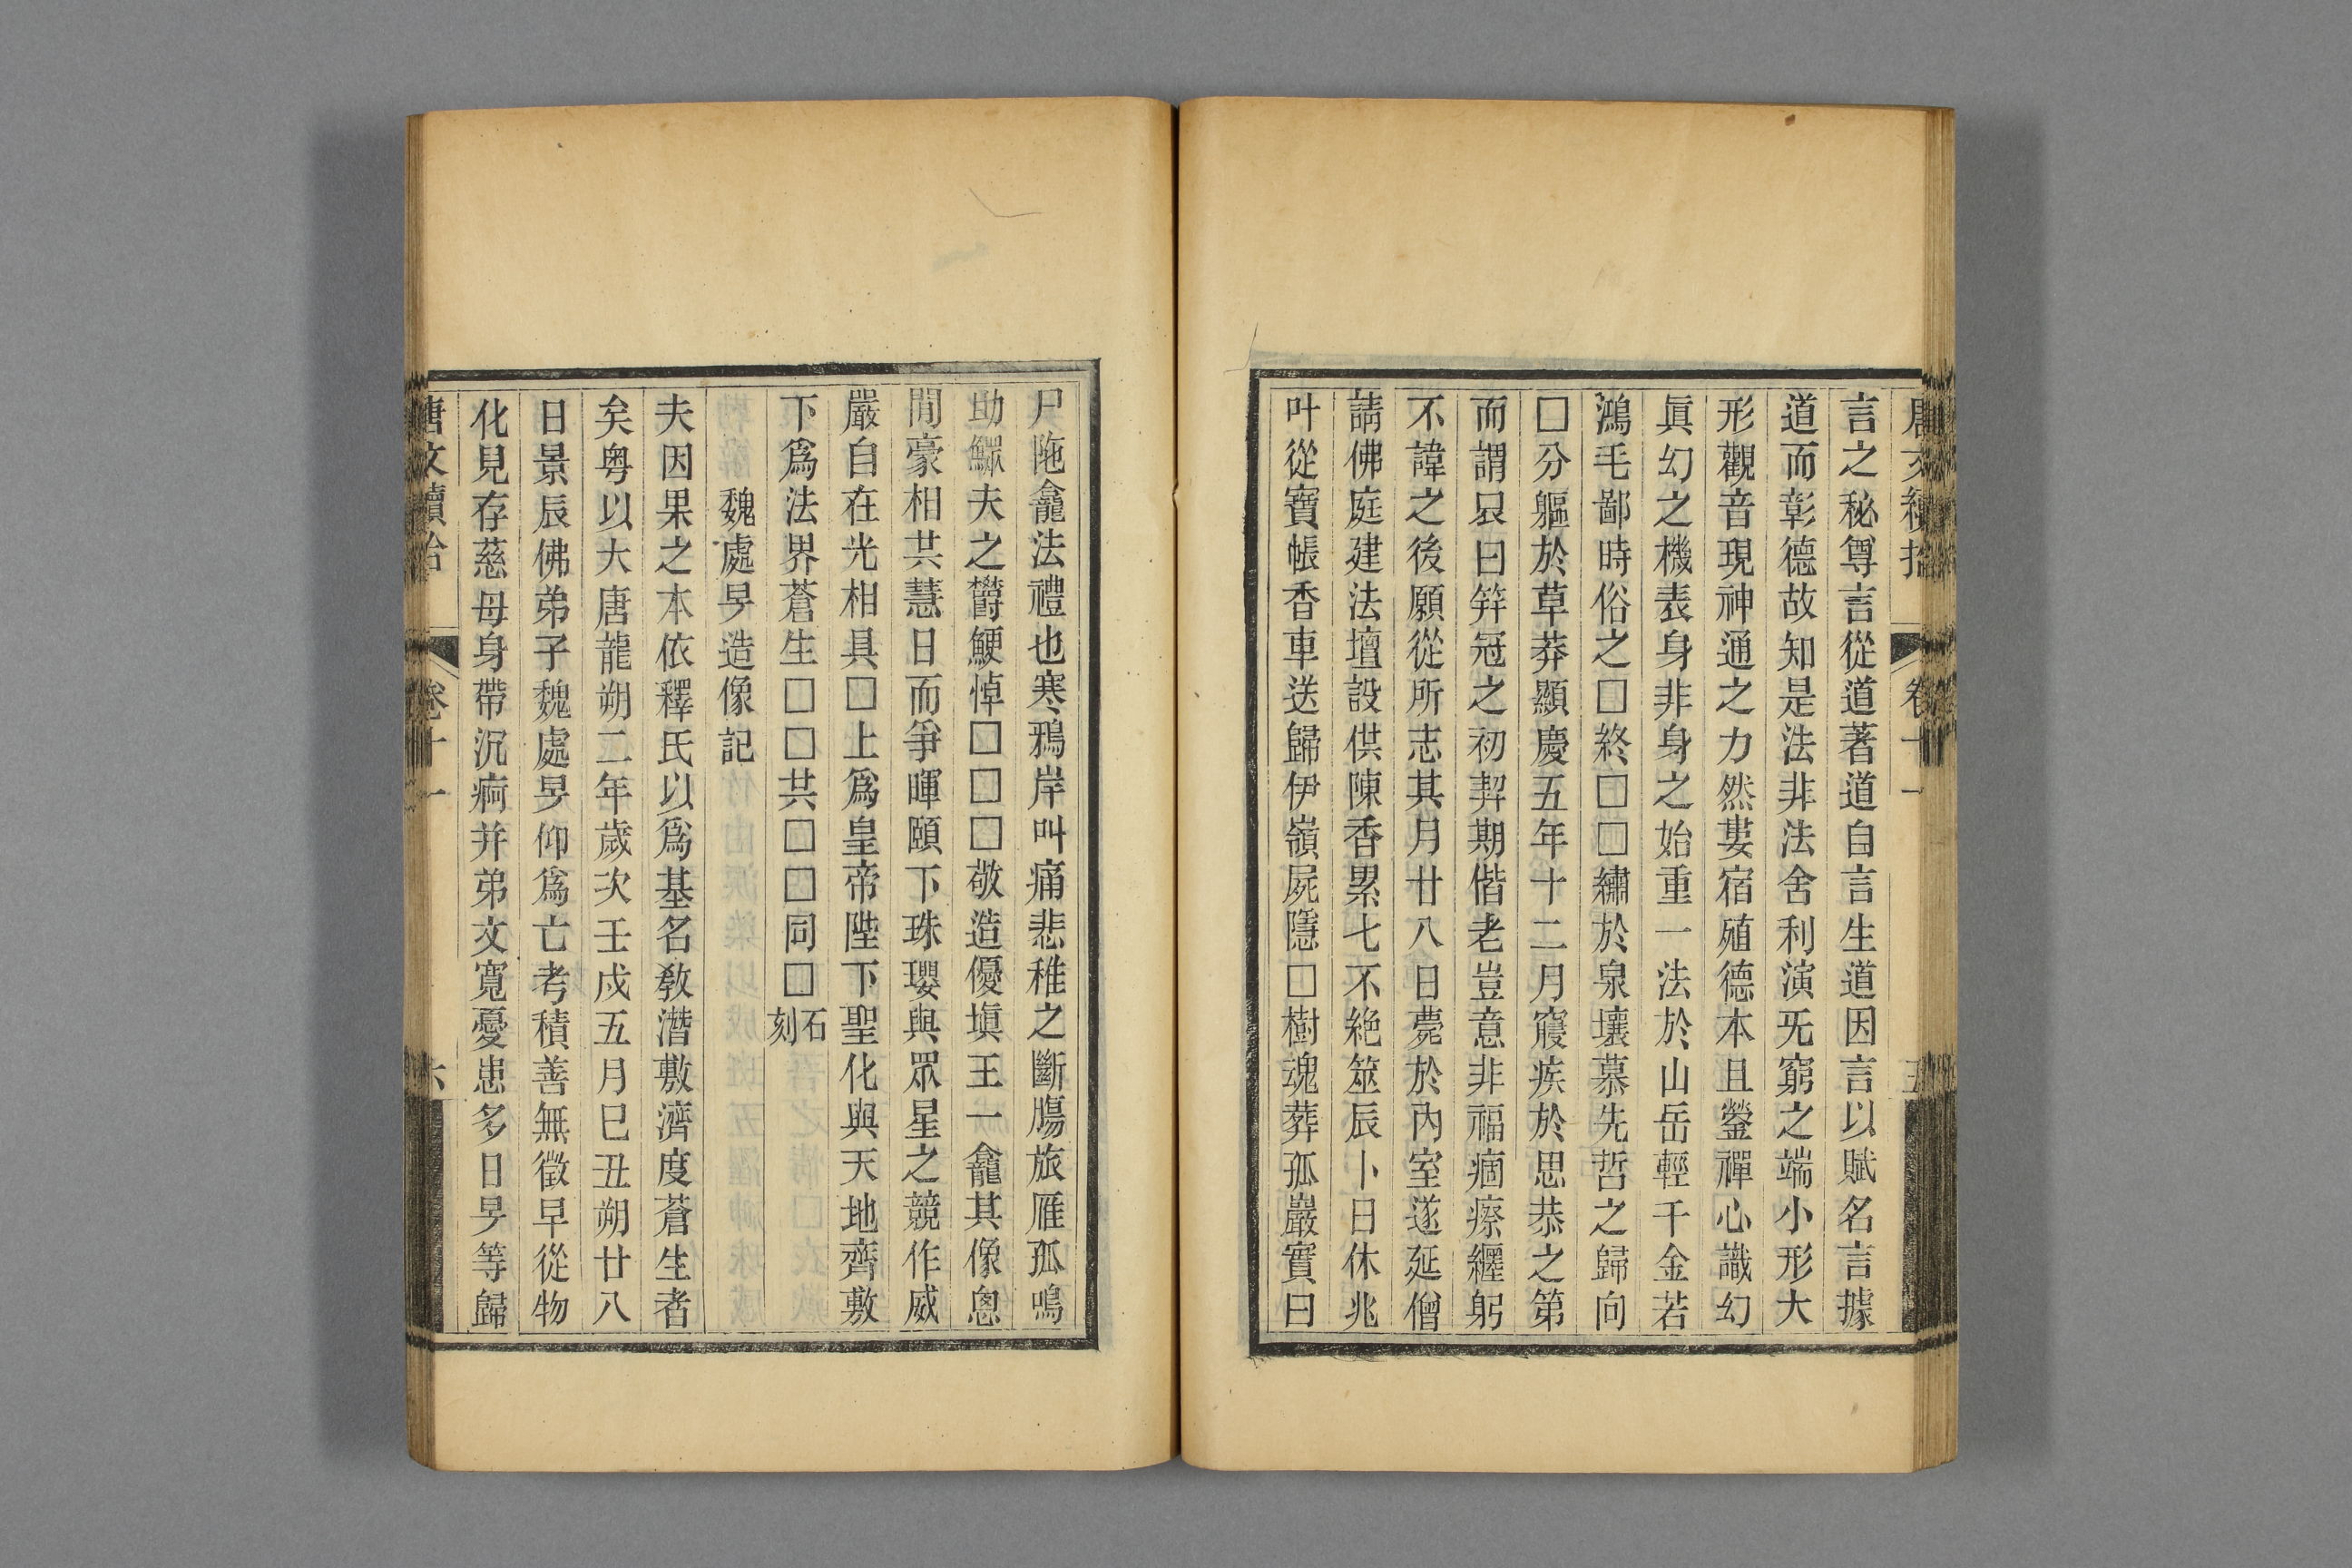 唐文續拾 卷十一 五
言之秘尊言從道著道自言生道因言以賦名言據
道而彰德故知是法非法舍利演旡窮之端小形大
形觀音現神通之力然婁宿殖德本且鎣禪心識幻
眞幻之機表身非身之始重一法於山岳輕千金若
鴻毛鄙時俗之□終□□繡於泉壤慕先哲之歸向
□分軀於草莽顯慶五年十二月寢疾於思恭之第
而謂㫪曰笄冠之初契期偕老豈意非福痼瘵纒躬
不諱之後願從所志其月廿八日薨於內室遂延僧
請佛庭建法壇設供陳香累七不絶筮辰卜日休兆
叶從寶帳香車送歸伊嶺屍隱□樹魂葬孤巖實曰
尸陁龕法禮也寒鴉岸叫痛悲稚之斷膓旅雁孤鳴
助鰥夫之欝鯁悼□□□敬造優塡王一龕其像恖
閒豪相共慧日而爭暉頤下珠瓔與眾星之競作威
嚴自在光相具□上爲皇帝陛下聖化與天地齊敷
下爲法界蒼生□□共□□同□石刻
魏處旻造像記
夫因果之本依釋氏以爲基名敎潛敷濟度蒼生者
矣粤以大唐龍朔二年歲次壬戌五月巳丑朔廿八
日景辰佛弟子魏處旻仰爲亡考積善無徵早從物
化見存慈母身帶沉痾并弟文寬憂患多日旻等歸
唐文續拾 卷十一 六